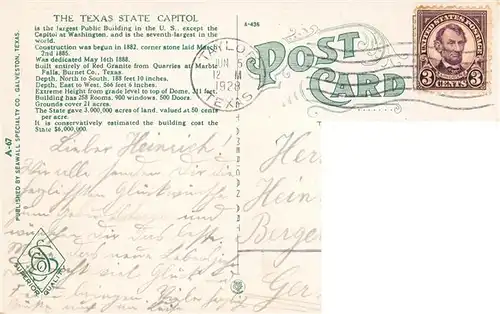 THE TEXAS STATE CAPITOL
is the largest Public Building in the U. S., except the
Capitol at Washington, and is the seventh-largest in the
world.
Construction was begun in 1882, corner stone laid March
2nd 1885.
Was dedicated May 16th 1888.
Built entirely of Red Granite from Quarries at Marble
Falls, Burnet Co., Texas.
Depth, North to South, 188 feet 10 inches.
Depth, East to West, 566 feet 6 inches.
Extreme Height from grade level to top of Dome, 311 feet.
Building has 258 Rooms, 900 windows, 500 Doors.
Grounds cover 21 acres.
The State gave 3,000,000 acres of land, valued at 50 cents
per acre.
It is conservatively estimated the building cost the
State $6,000,000.
A-67
PUBLISHED BY SEAWALL SPECIALTY CO. - GALVESTON, TEXAS.
SUPERIOR QUALITY
A-436
POST
CARD
TAYLOR
JUN 5
12 M
1928
TEXAS
UNITED STATES POSTAGE
LINCOLN
3 CENTS 3
Lieber Heinrich!
Wir alle senden Dir die
herzlichsten Glückwünsche
zum
und
wünschen dir das beste
das neue Lebensjahr
viel Glück
bringen.
Herr
Hein
Berge
Ger